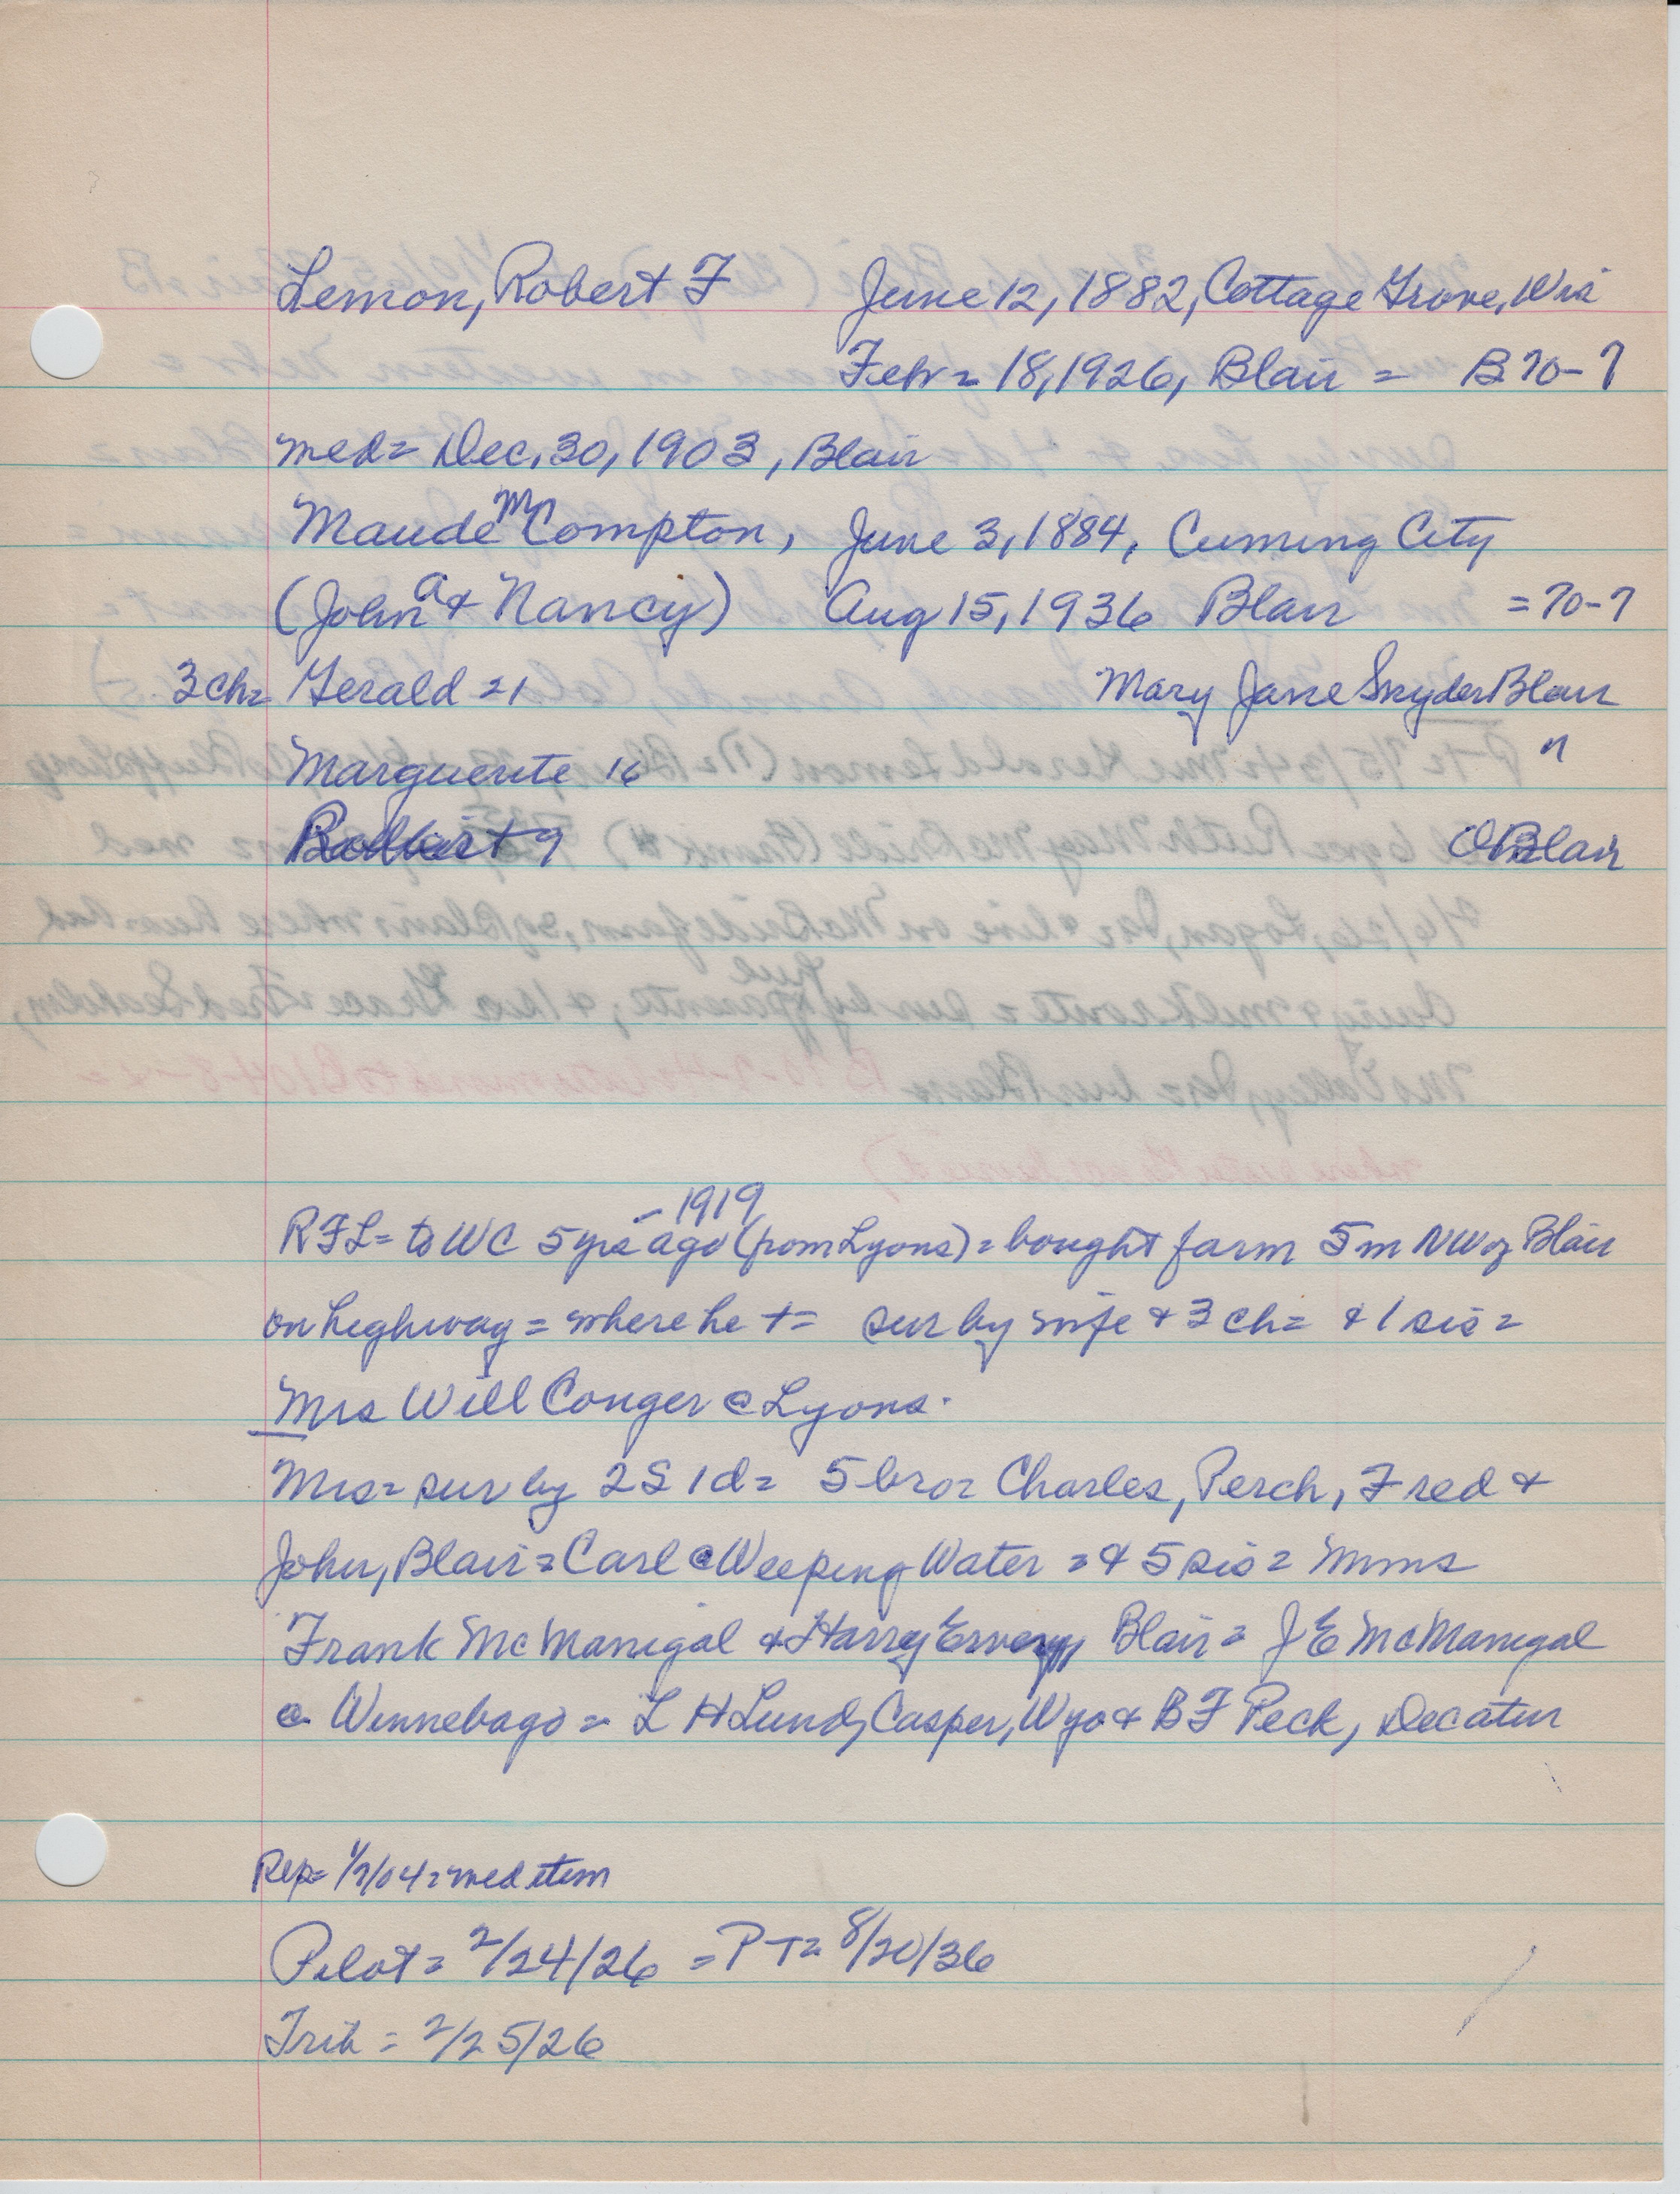 Lemon, Robert F June 12, 1882, Cottage Grove, Wis
Feb = 18, 1926, Blair = B 70-7
med = Dec, 30, 1903, Blair
Maude M Compton, June 3, 1884, Cuming City
(John A & Nancy) Aug 15, 1936 Blair = 70-7
3 ch = Gerald 21 Mary Jane Snyder Blair
Marguerite 16 "
Robert 9 Blair
- 1919
RFL = to WC 5 yrs ago (from Lyons) = bought farm 5 m NW of Blair
on highway = where he + = sur by wife & 3 ch = & 1 sis =
Mrs Will Conger @ Lyons.
Mrs = sur by 2 S 1 d = 5 bro = Charles, Perch, Fred &
John, Blair = Carl @ Weeping Water = & 5 sis = Mms
Frank McManigal & Harry Ervery Blair = J E McManigal
@ Winnebago = L H Lund, Casper, Wyo & B F Peck, Decatur
Rep = 1/7/04 = wed item
Pilot = 2/24/26 = PT = 8/20/36
Trib = 2/25/26